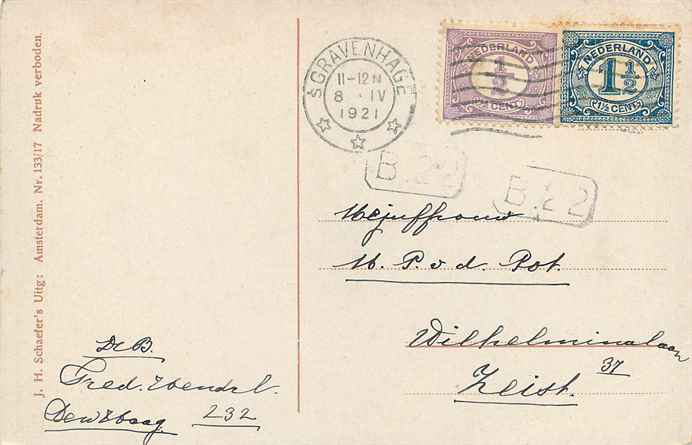 J. H. Schaefer's Uitg: Amsterdam. Nr. 133/17 Nadruk verboden.
'SGRAVENHAGE
11-12 N
8 · IV
1921
NEDERLAND
½
½ CENT
NEDERLAND
1½
1½ CENT
B.22
B.22
Mejuffrouw
M. P. v. d. Pot.
Wilhelminalaan
37
Zeist.
Fred.
232